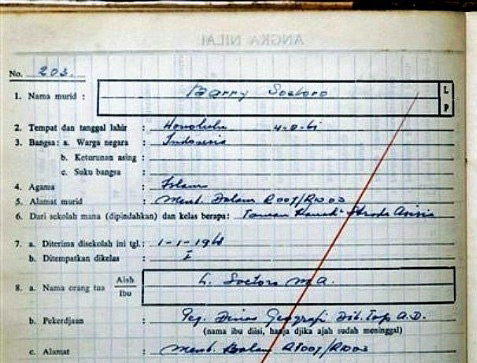 ANGKA NILAI
No. 203.
1. Nama murid : Barry Soetoro L P
2. Tempat dan tanggal lahir : Honolulu 4-8-61
3. Bangsa: a. Warga negara : Indonesia
b. Keturunan asing :
c. Suku bangsa :
4. Agama : Islam
5. Alamat murid : Ment. Dalam R007/Rw03
6. Dari sekolah mana (dipindahkan) dan kelas berapa: Taman Strada Asisia
7. a. Diterima disekolah ini tgl.: 1-1-1968
b. Ditempatkan dikelas : I
8. a. Nama orang tua Ajah Ibu L. Soetoro M.A.
b. Pekerdjaan : Peg. Dinas Geografi Dit. Top. A.D.
(nama ibu diisi, hanja djika ajah sudah meninggal)
c. Alamat : Ment. Dalam RT007/Rw03